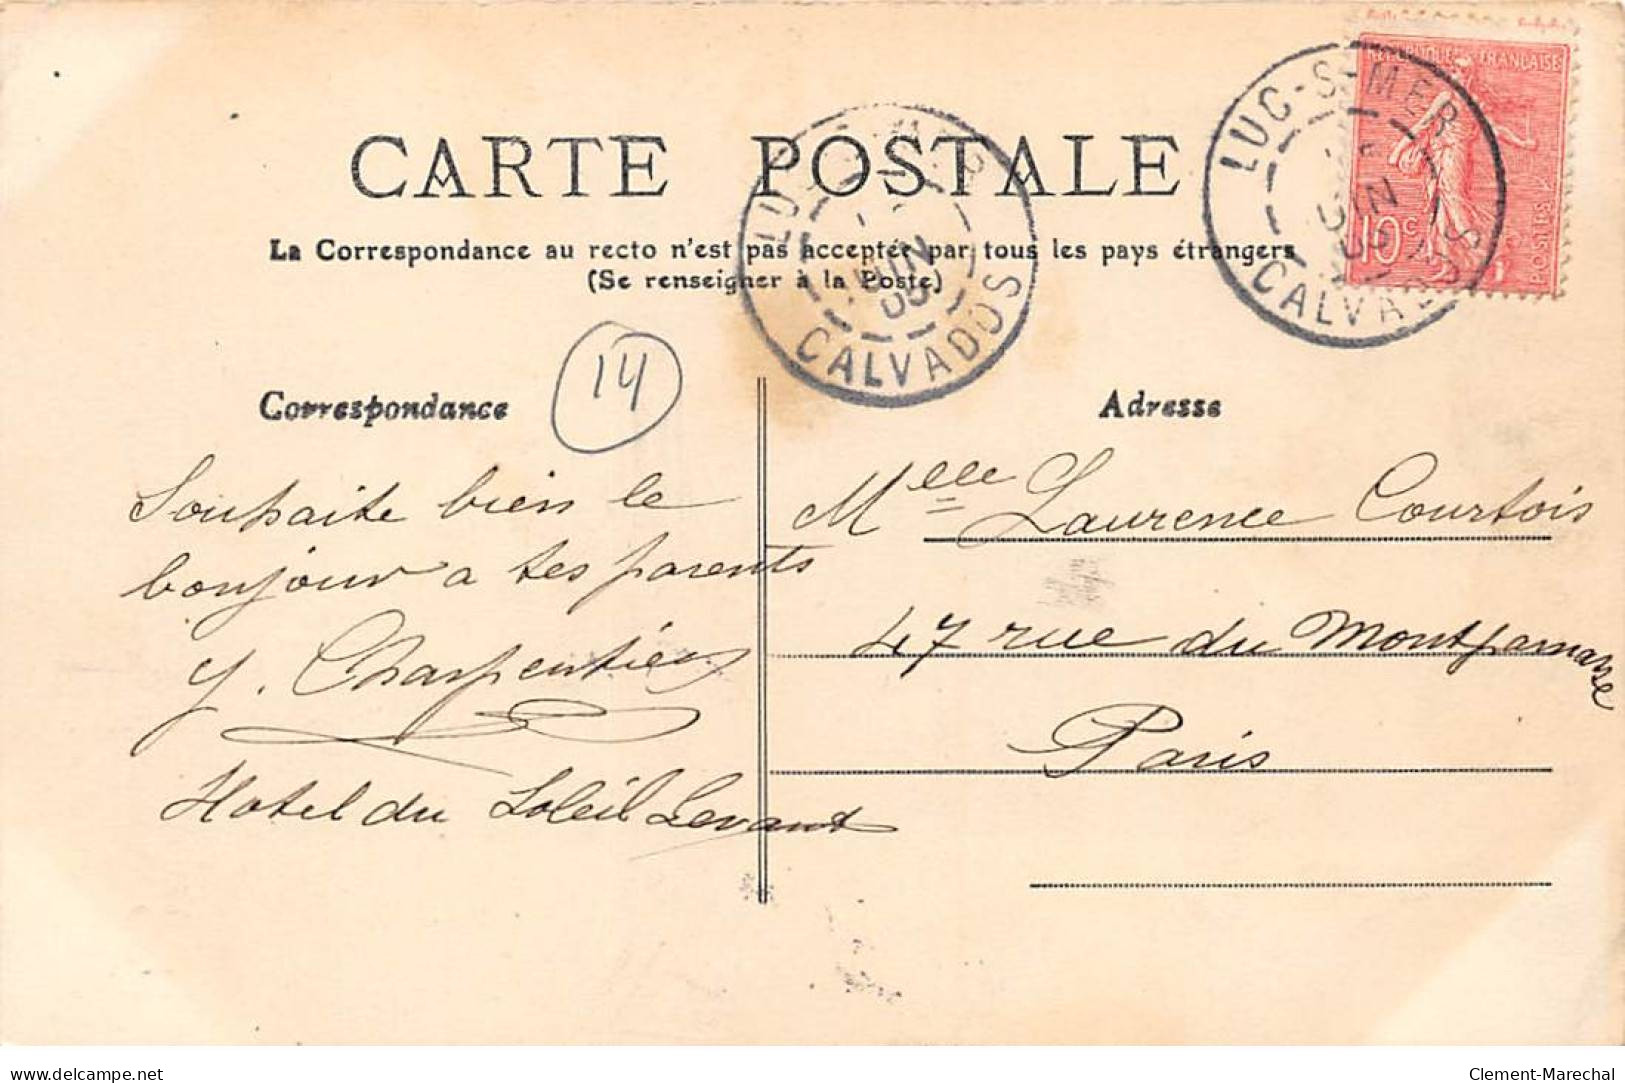 CARTE POSTALE
La Correspondance au recto n'est pas acceptée par tous les pays étrangers
(Se renseigner à la Poste)
LUC-S-MER
JUIN
CALVADOS
LUC-S-MER
JUIN
CALVADOS
REPUBLIQUE FRANÇAISE
10c
POSTES
14
Correspondance
Souhaite bien le
bonjour a tes parents
y. Charpentier
Hotel du Soleil Levant
Adresse
Melle Laurence Courtois
47 rue du Montparnasse
Paris
delcampe.net
Clement-Marechal